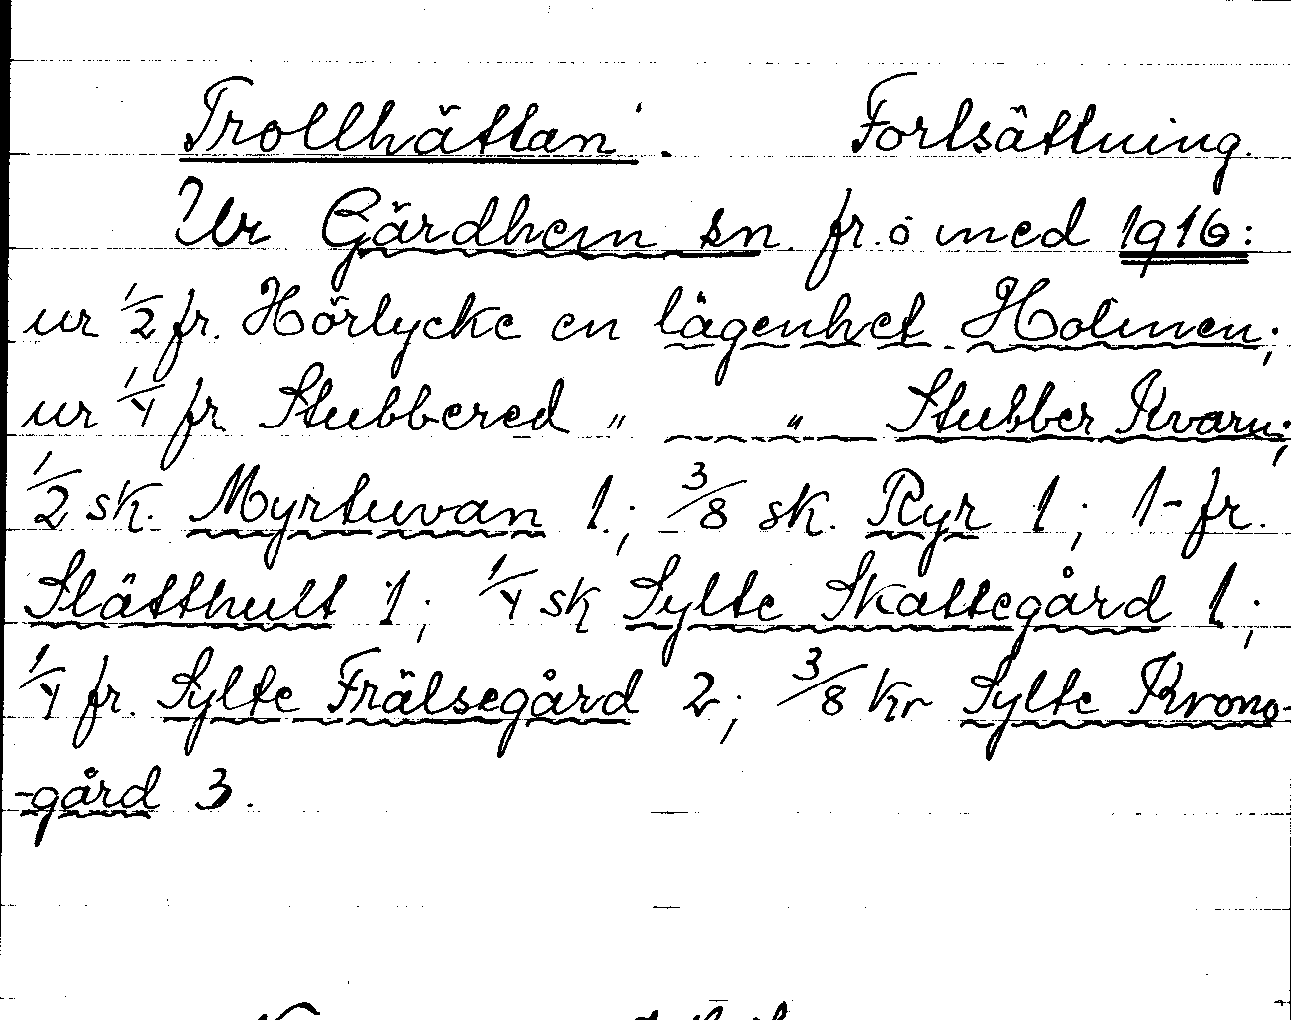 Trollhättan. Fortsättning.
Ur Gärdhem sn. fr. o med 1916:
ur 1/2 fr. Hörlycke en lägenhet Holmen;
ur 1/4 fr. Stubbered " " Stubber Kvarn;
1/2 sk. Myrtuvan 1.; 3/8 sk. Ryr 1; 1- fr.
Slätthult 1; 1/4 sk Sylte Skattegård 1;
1/4 fr. Sylte Frälsegård 2; 3/8 kr Sylte Krono-
-gård 3.